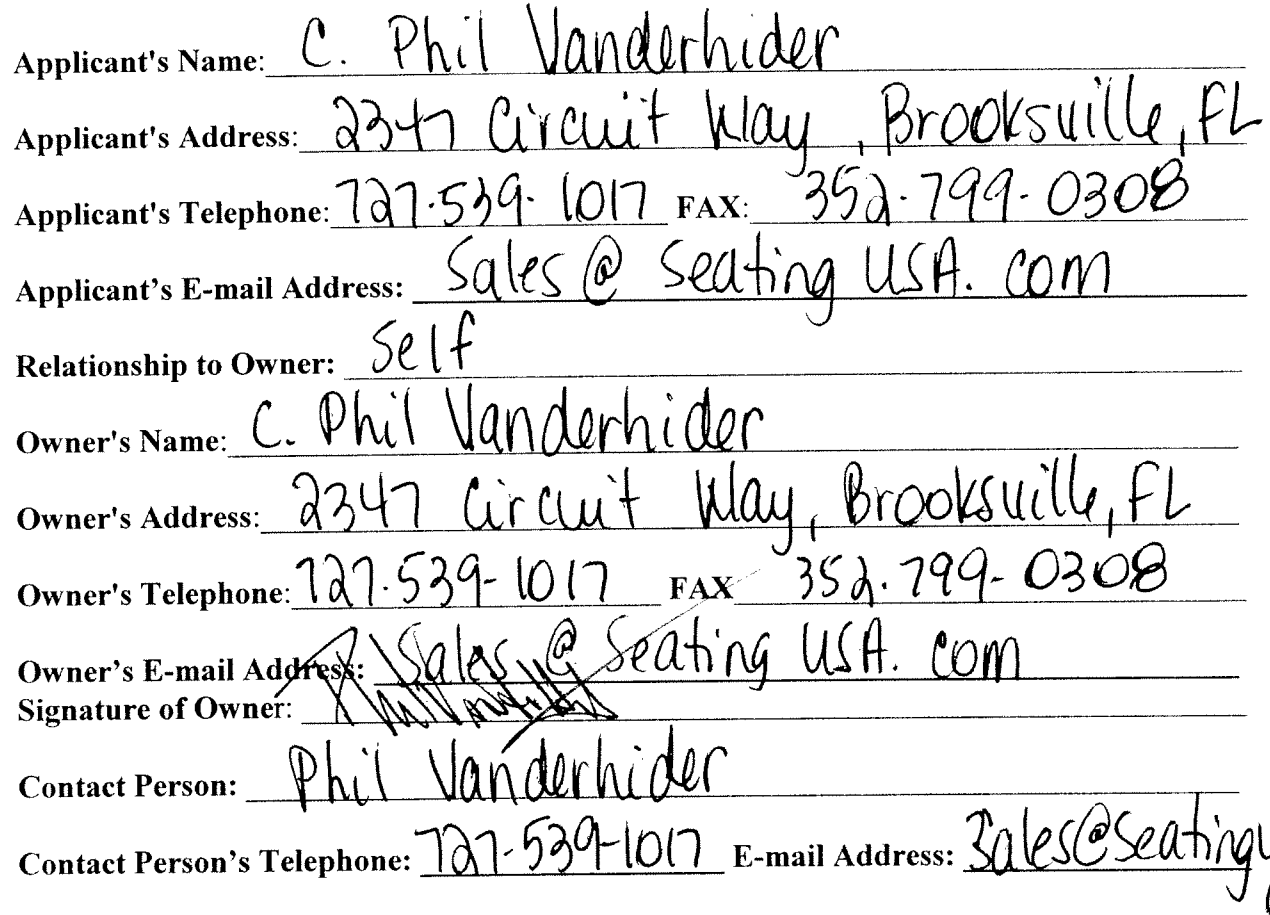 Applicant's Name: C. Phil Vanderhider
Applicant's Address: 2347 Circuit Way, Brooksville, FL
Applicant's Telephone: 727.539-1017 FAX: 352.799-0308
Applicant's E-mail Address: Sales@SeatingUSA.com
Relationship to Owner: Self
Owner's Name: C. Phil Vanderhider
Owner's Address: 2347 Circuit Way, Brooksville, FL
Owner's Telephone: 727.539-1017 FAX 352.799-0308
Owner's E-mail Address: Sales@SeatingUSA.com
Signature of Owner:
Contact Person: Phil Vanderhider
Contact Person's Telephone: 727-539-1017 E-mail Address: Sales@Seating